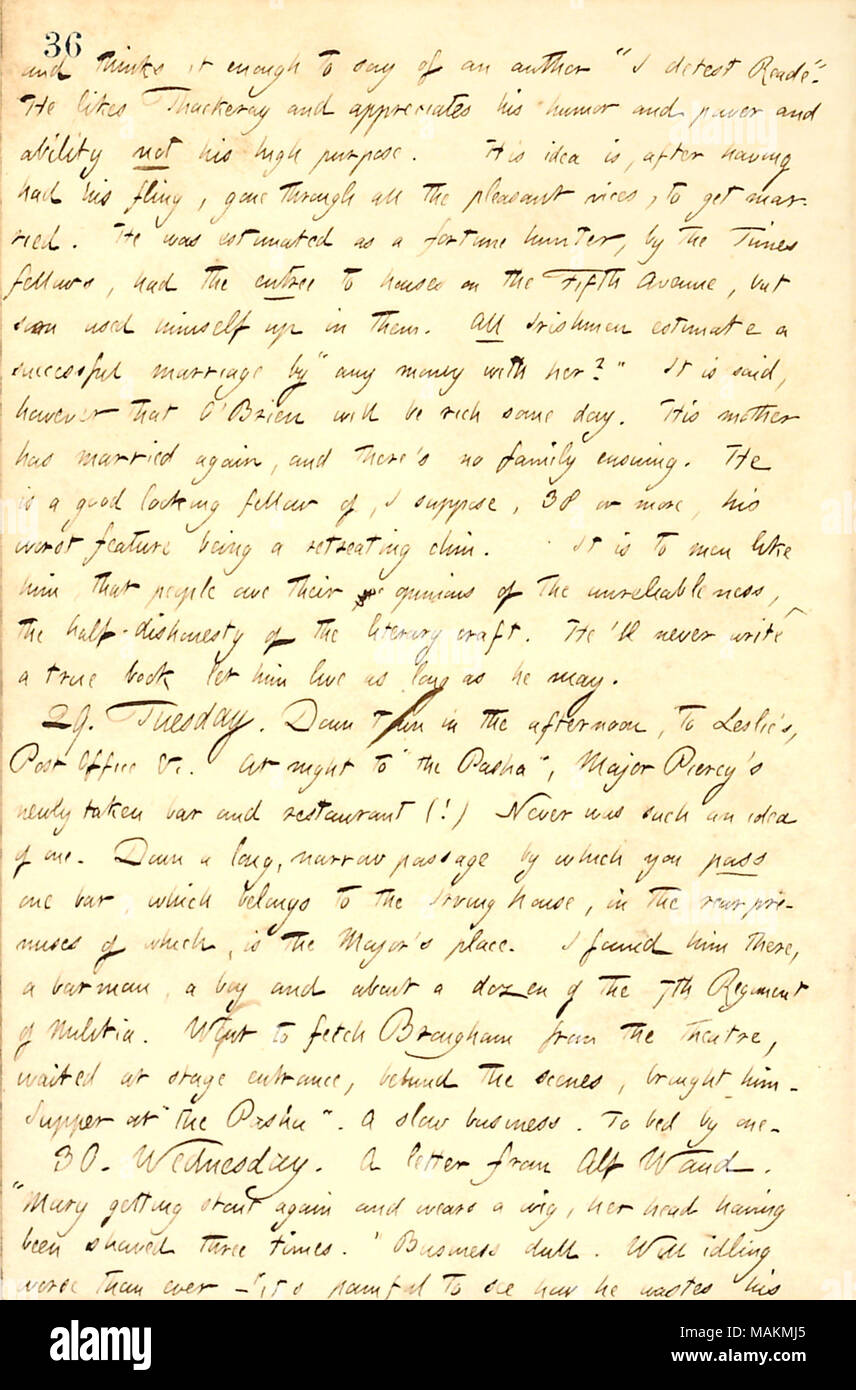 36
and thinks it enough to say of an author "I detest Reade".
He likes Thackeray and appreciates his humor and power and
ability not his high purpose. His idea is, after having
had his fling, gone through all the pleasant vices, to get mar-
ried. He was estimated as a fortune hunter, by the Times
fellows, had the entree to houses on the Fifth Avenue, but
soon used himself up in them. All Irishmen estimate a
successful marriage by "any money with her?" It is said,
however that O'Brien will be rich some day. His mother
has married again, and there's no family ensuing. He
is a good looking fellow of, I suppose, 38 or more, his
worst feature being a retreating chin. It is to men like
him, that people owe their opinions of the unreliableness,
the half-dishonesty of the literary craft. He'll never write
a true book let him live as long as he may.
29. Tuesday. Down town in the afternoon, to Leslie's,
Post Office &c. At night to "the Pasha", Major Piercy's
newly taken bar and restaurant (!) Never was such an idea
of one. Down a long, narrow passage by which you pass
one bar, which belongs to the Irving House, in the rear pre-
mises of which, is the Major's place. I found him there,
a barman, a boy and about a dozen of the 7th Regiment
of Militia. Went to fetch Brougham from the theatre,
waited at stage entrance, behind the scenes, brought him.
Supper at "the Pasha". A slow business. To bed by one.
30. Wednesday. A letter from Alf Waud.
"Mary getting stout again and wears a wig, her head having
been shaved three times." Business dull. Will idling
worse than ever – "it's painful to see how he wastes his
alamy
Image ID: MAKMJ5
www.alamy.com